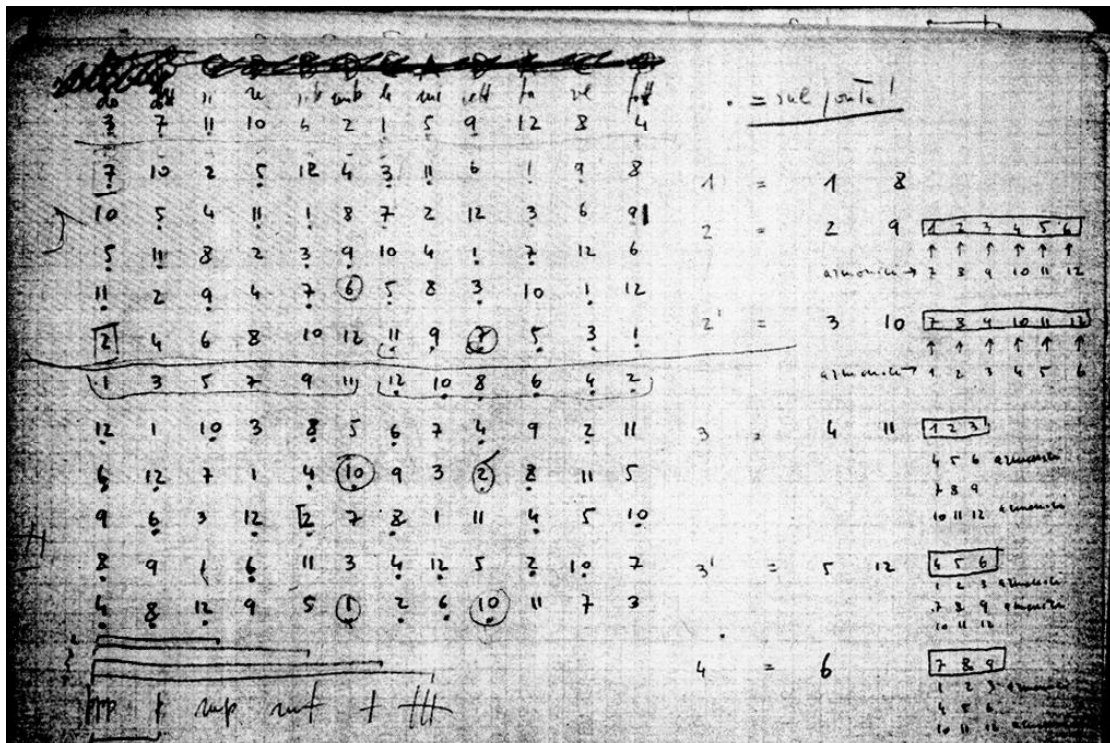 do si re la mi fa sol fa#
. = sul ponte!
3 7 11 10 6 2 1 5 9 12 8 4
7 10 2 5 12 4 3 11 6 1 9 8
10 5 4 11 1 8 7 2 12 3 6 9
5 11 8 2 3 9 10 4 1 7 12 6
11 2 9 4 7 6 5 8 3 10 1 12
2 4 6 8 10 12 11 9 7 5 3 1
1 3 5 7 9 11 12 10 8 6 4 2
12 1 10 3 8 5 6 7 4 9 2 11
6 12 7 1 4 10 9 3 2 8 11 5
9 6 3 12 2 7 8 1 11 4 5 10
8 9 1 6 11 3 4 12 5 2 10 7
4 8 12 9 5 1 2 6 10 11 7 3
ppp mp mf f fff
1 = 1 8
2 = 2 9 1 2 3 4 5 6
armonici → 7 8 9 10 11 12
2' = 3 10 7 8 9 10 11 12
armonici → 1 2 3 4 5 6
3 = 4 11 1 2 3
4 5 6 armonici
7 8 9
10 11 12 armonici
3' = 5 12 4 5 6
1 2 3 armonici
7 8 9 armonici
10 11 12
4 = 6 7 8 9
1 2 3 armonici
4 5 6
10 11 12 armonici